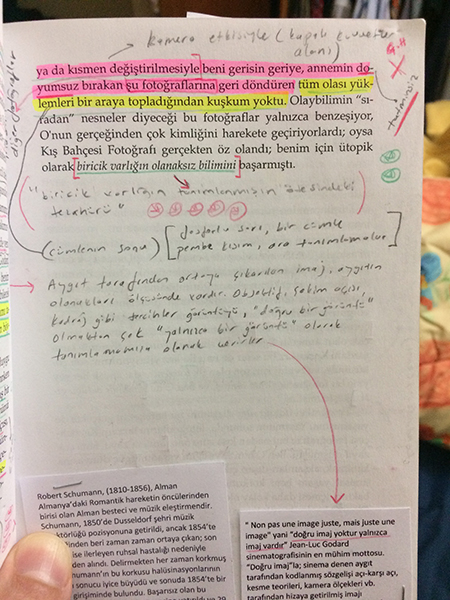 kamera etkisiyle (kapalı
alanı)
ya da kısmen değiştirilmesiyle beni gerisin geriye, annemin do-
yumsuz bırakan şu fotoğraflarına geri döndüren tüm olası yük-
lemleri bir araya topladığından kuşkum yoktu. Olaybilimin "sı-
radan" nesneler diyeceği bu fotoğraflar yalnızca benzeşiyor,
O'nun gerçeğinden çok kimliğini harekete geçiriyorlardı; oysa
Kış Bahçesi Fotoğrafı gerçekten öz olandı; benim için ütopik
olarak biricik varlığın olanaksız bilimini başarmıştı.
"biricik varlığın tanımlanmışın ötesindeki
(cümlenin sonu) fosforlu sarı, bir cümle
pembe kısım, ara tanımlamalar
Aygıt tarafından ortaya çıkarılan imaj, aygıtın
olanakları ölçüsünde vardır. Objektif, çekim açısı,
kadraj gibi tercihler görüntüyü, "doğru bir görüntü"
olmaktan çok "yalnızca bir görüntü" olarak
tanımlamamıza olanak verirler
Robert Schumann, (1810-1856), Alman
Almanya'daki Romantik hareketin öncülerinden
birisi olan Alman besteci ve müzik eleştirmendir.
Schumann, 1850'de Dusseldorf şehri müzik
ktörlüğü pozisyonuna getirildi, ancak 1854'te
inden beri zaman zaman ortaya çıkan; son
se ilerleyen ruhsal hastalığı nedeniyle
nden alındı. Delirmekten her zaman korkmuş
umann'ın bu korkusu halüsinasyonlarının
sonucu iyice büyüdü ve sonuda 1854'te bir
girişiminde bulundu. Başarısız olan bu
" Non pas une image juste, mais juste une
image" yani "doğru imaj yoktur yalnızca
imaj vardır" Jean-Luc Godard
sinematografisinin en mühim mottosu.
"Doğru imaj"la; sinema denen aygıt
tarafından kodlanmış sözgelişi açı-karşı açı,
kesme teorileri, kamera ölçekleri vb.
tarafından hizaya getirilmiş imajı